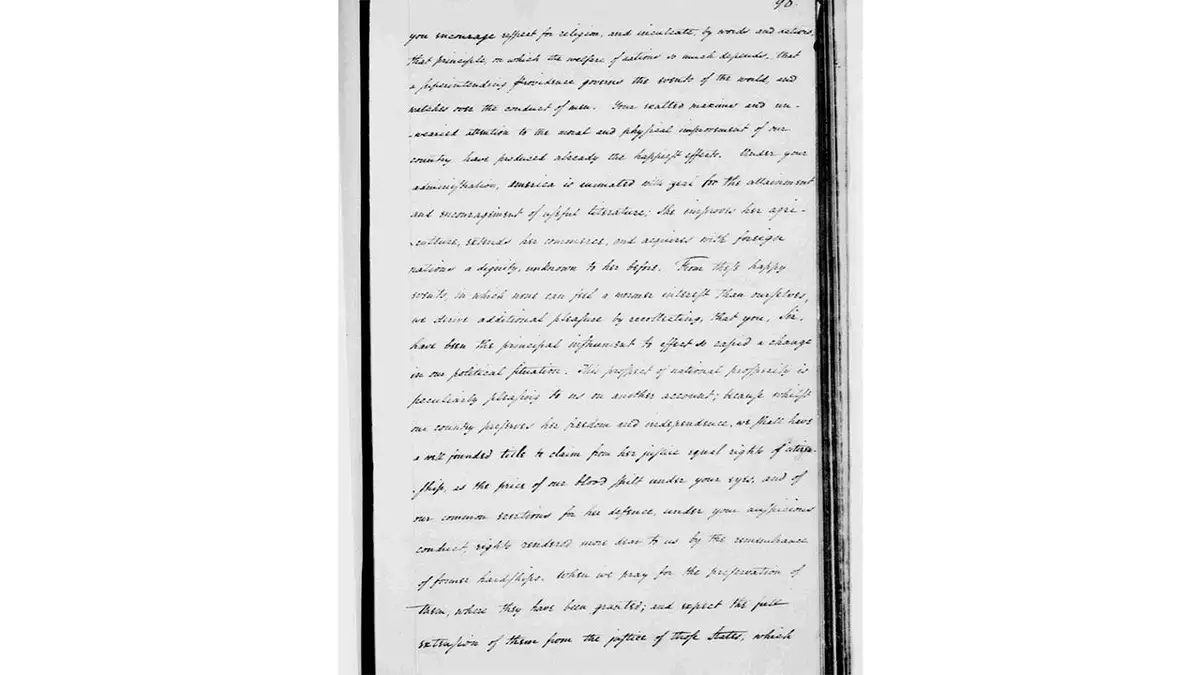 98.
you encourage respect for religion, and inculcate, by words and actions,
that principle, on which the welfare of nations so much depends, that
a superintending Providence governs the events of the world, and
watches over the conduct of men. Your exalted maxims and un-
-wearied attention to the moral and physical improvement of our
country have produced already the happiest effects. Under your
administration, America is animated with zeal for the attainment
and encouragement of useful literature; She improves her agri-
-culture, extends her commerce, and acquires with foreign
nations a dignity, unknown to her before. From these happy
events, in which none can feel a warmer interest than ourselves,
we derive additional pleasure by recollecting, that you, Sir,
have been the principal instrument to effect so rapid a change
in our political situation. This prospect of national prosperity is
peculiarly pleasing to us on another account; because whilst
our country preserves her freedom and independence, we shall have
a well founded title to claim from her justice equal rights of citizen-
-ship, as the price of our blood spilt under your eyes, and of
our common exertions for her defence, under your auspicious
conduct, rights rendered more dear to us by the remembrance
of former hardships. When we pray for the preservation of
them, where they have been granted; and expect the full
extension of them from the justice of those States, which